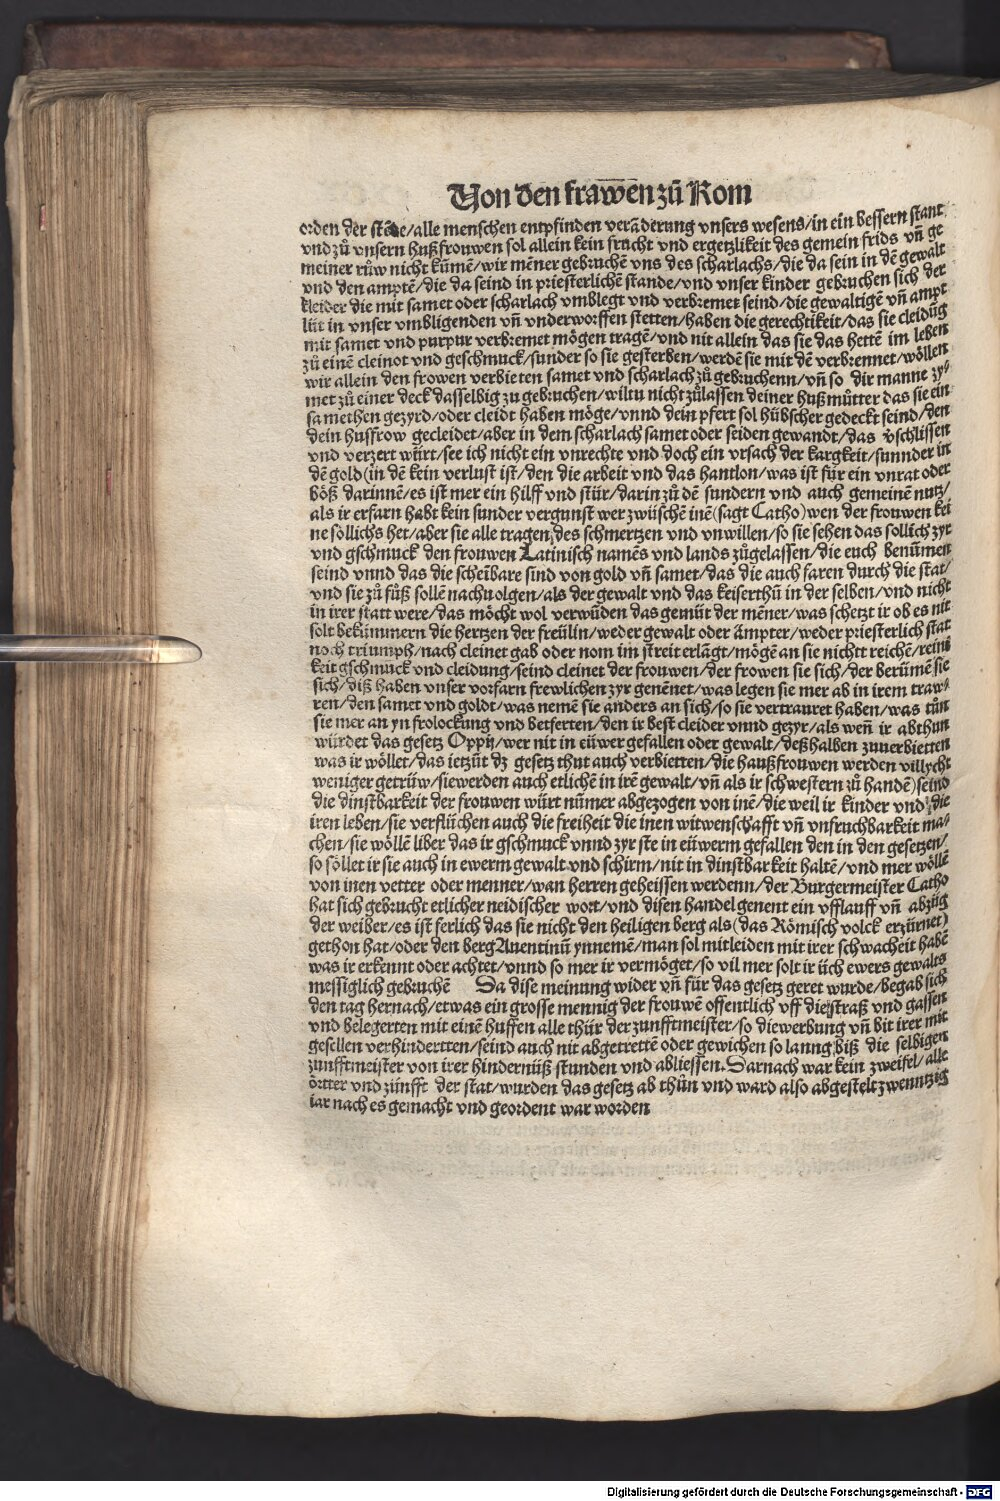 Von den frawen̄ zů Rom
orden der stēde/alle menschen entpfinden verāderung vnsers wesens/in ein bessern stant
vnd zů vnsern hußfrouwen sol allein kein frucht vnd ergetzlikeit des gemein frids vn̄ ge
meiner růw nicht kūmē/wir mēner gebruchē vns des scharlachs/die da sein in dē gewalt
vnd den amptē/die da seind in priesterlichē stande/vnd vnser kinder gebruchen sich der
kleider die mit samet oder scharlach vmblegt vnd verbremet seind/die gewaltigē vn̄ ampt
lüt in vnser vmbligenden vn̄ vnderworffen stetten/haben die gerechtikeit/das sie cleidūg
mit samet vnd purpur verbremet mögen tragē/vnd nit allein das sie das hettē im leben
zů einē cleinot vnd geschmuck/sunder so sie gesterben/werdē sie mit dē verbrennet/wöllen
wir allein den frowen verbieten samet vnd scharlach zů gebruchenn/vn̄ so dir manne zy⸗
met zů einer deck dasselbig zu gebruchen/wiltu nicht zůlassen deiner hußmůtter das sie ein
samethen gezyrd/oder cleidt haben möge/vnnd dein pfert sol hübscher gedeckt seind/den
dein husfrow gecleidet/aber in dem scharlach samet oder seiden gewandt/das v̄schlissen
vnd verzert würt/see ich nicht ein vnrechte vnd doch ein vrsach der kargkeit/sunnder in
dē gold(in dē kein verlust ist/den die arbeit vnd das hantlon/was ist für ein vnrat oder
böß darinnē/es ist mer ein hilff vnd stür/darin zů dē sundern vnd auch gemeinē nutz/
als ir erfarn habt kein sunder vergunst wer zwüschē inē(sagt Catho)wen der frouwen kei
ne söllichs het/aber sie alle tragen des schmertzen vnd vnwillen/so sie sehen das sollich zyr
vnd gschmuck den frouwen Latinisch namēs vnd lands zůgelassen/die euch benūmen
seind vnnd das die scheībare sind von gold vn̄ samet/das die auch faren durch die stat/
vnd sie zů fůß sollē nachuolgen/als der gewalt vnd das keiserthū in der selben/vnd nicht
in irer statt were/das möcht wol verwūden das gemüt der mēner/was schetzt ir ob es nit
solt bekümmern die hertzen der freülin/weder gewalt oder ämpter/weder priesterlich stat
noch triumph/nach cleinet gab oder nom im streit erlāgt/mögē an sie nichtt reichē/reinē
keit gschmuck vnd cleidung/seind cleinet der frouwen/der frowen sie sich/der berümē sie
sich/diß haben vnser vorfarn frewlichen zyr genēnet/was legen sie mer ab in irem traw⸗
ren/den samet vnd goldt/was nemē sie anders an sich/so sie vertrauret haben/was tůn
sie mer an yn frolockung vnd betferten/den ir best cleider vnnd gezyr/als wen̄ ir abthun
würdet das gesetz Oppij/wer nit in eüwer gefallen oder gewalt/deßhalben zuuerbietten
was ir wöllet/das ietzūt dz gesetz thut auch verbietten/die haußfrouwen werden villycht
weniger getrüw/sie werden auch etlichē in irē gewalt/vn̄ als ir schwestern zů handē)seind
die dinstbarkeit der frouwen würt nūmer abgezogen von inē/die weil ir kinder vnd die
iren leben/sie verflüchen auch die freiheit die inen witwenschafft vn̄ vnfruchbarkeit ma⸗
chen/sie wöllē liber das ir gschmuck vnnd zyr ste in eüwerm gefallen den in den gesetzen/
so söllet ir sie auch in ewerm gewalt vnd schirm/nit in dinstbarkeit haltē/vnd mer wöllē
von inen vetter oder menner/wan herren geheissen werdenn/der Burgermeister Catho
hat sich gebrucht etlicher neidischer wort/vnd disen handel genent ein vfflauff vn̄ abzüg
der weiber/es ist ferlich das sie nicht den heiligen berg als(das Römisch volck erzürnet)
gethon hat/oder den berg Auentinū ynnemē/man sol mitleiden mit irer schwacheit habē
was ir erkennt oder achtet/vnnd so mer ir vermöget/so vil mer solt ir üch ewers gewalts
messiglich gebruchē Da dise meinung wider vn̄ für das gesetz geret wurde/begab sich
den tag hernach/etwas ein grosse mennig der frouwē offentlich vff die straß vnd gassen
vnd belegerten mit einē huffen alle thür der zunfftmeister/so die werbung vn̄ bit irer mit
gesellen verhindertten/seind auch nit abgetrettē oder gewichen so lanng biß die selbigen
zunfftmeister von irer hindernüß stunden vnd abliessen. Darnach war kein zweifel/alle
örtter vnd zünfft der stat/wurden das gesetz ab thůn vnd ward also abgestelt zwenntzig
iar nach es gemacht vnd geordent war worden
Digitalisierung gefördert durch die Deutsche Forschungsgemeinschaft - DFG